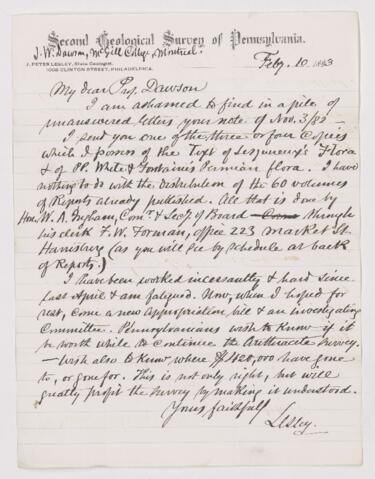 Second Geological Survey of Pennsylvania.
J. W. Dawson, McGill College, Montreal.
J. PETER LESLEY, State Geologist.
1008 CLINTON STREET, PHILADELPHIA.
Feby. 10 1883
My dear Prof. Dawson
I am ashamed to find in a pile of
unanswered letters your note of Nov. 3/82 —
I send you one of the three or four Copies
which I possess of the Text of Lesquereux's Flora
& of PP. White & Fontaine's Permian flora. I have
nothing to do with the distribution of the 60 volumes
of Reports already published. All that is done by
Hon. W. A. Ingham, Comr. & Secy. of Board through
his clerk F. W. Forman, office 223 Market St.
Harrisburg (as you will see by schedule at back
of Reports.)
I have been worked incessantly & hard since
last April & am fatigued. Now, when I hoped for
rest, come a new Appropriation bill & an investigating
Committee. Pennsylvanians wish to know if it
be worth while to continue the Anthracite Survey.
— Wish also to know where $420,000 have gone
to, or gone for. This is not only right, but will
greatly profit the survey by making it understood.
Yours faithfull
Lesley.